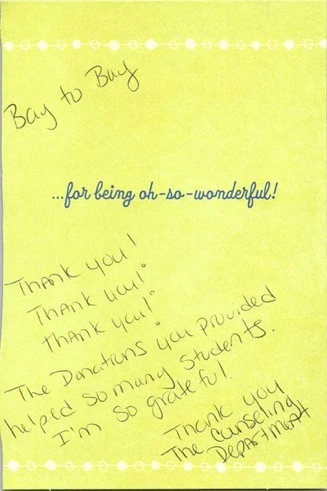 Bay to Bay
...for being oh-so-wonderful!
Thank you!
Thank you!
Thank you!
The Donations you provided
helped so many students.
I'm so grateful.
Thank you
The Counseling
Department